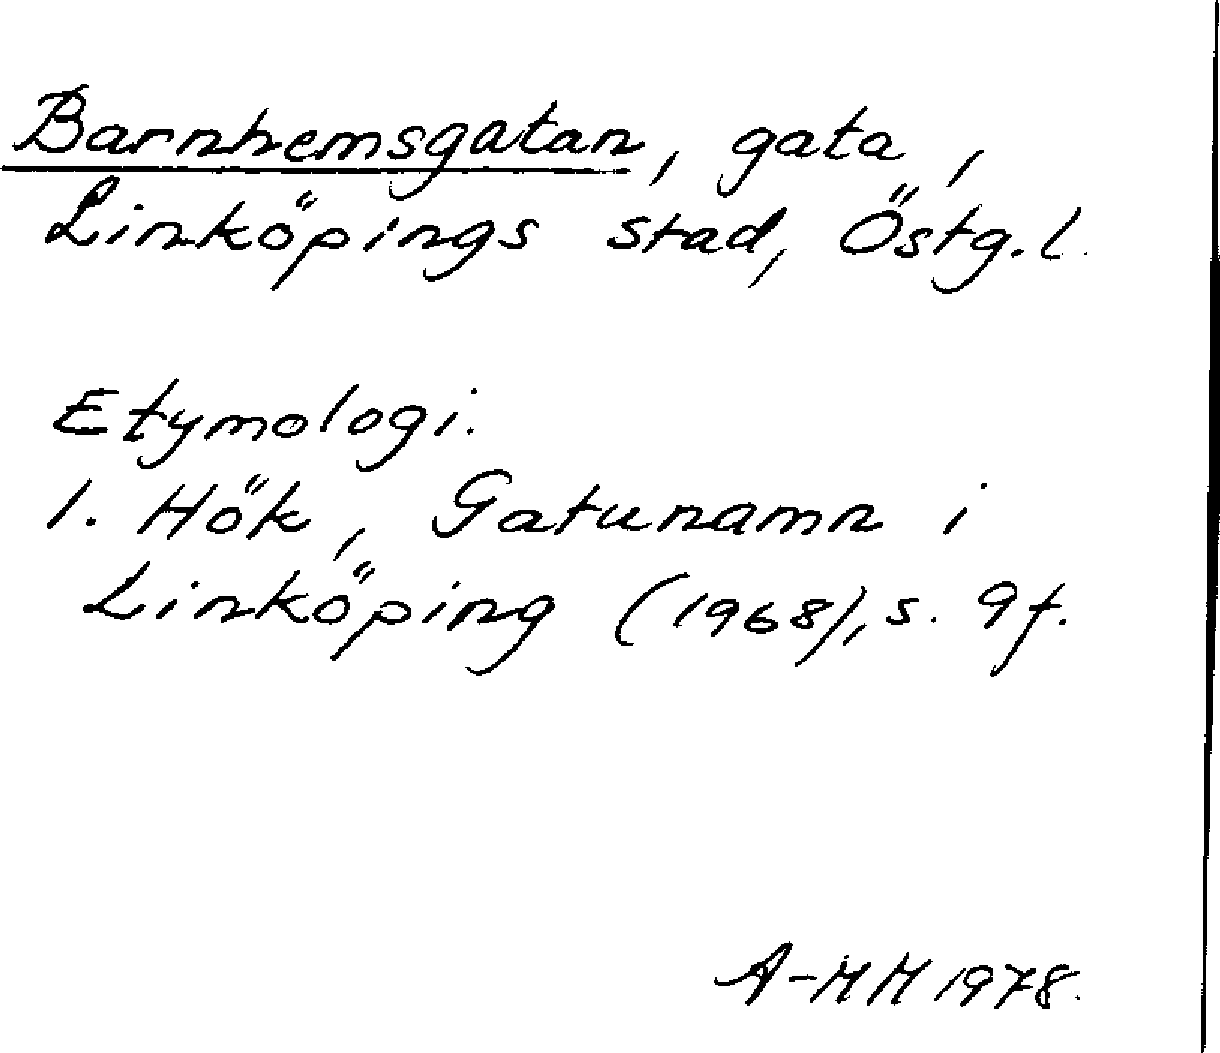 Barnhemsgatan, gata,
Linköpings stad, Östg.l.
Etymologi.
1. Hök, Gatunamn i
Linköping (1968), s. 9f.
A-MM 1978.